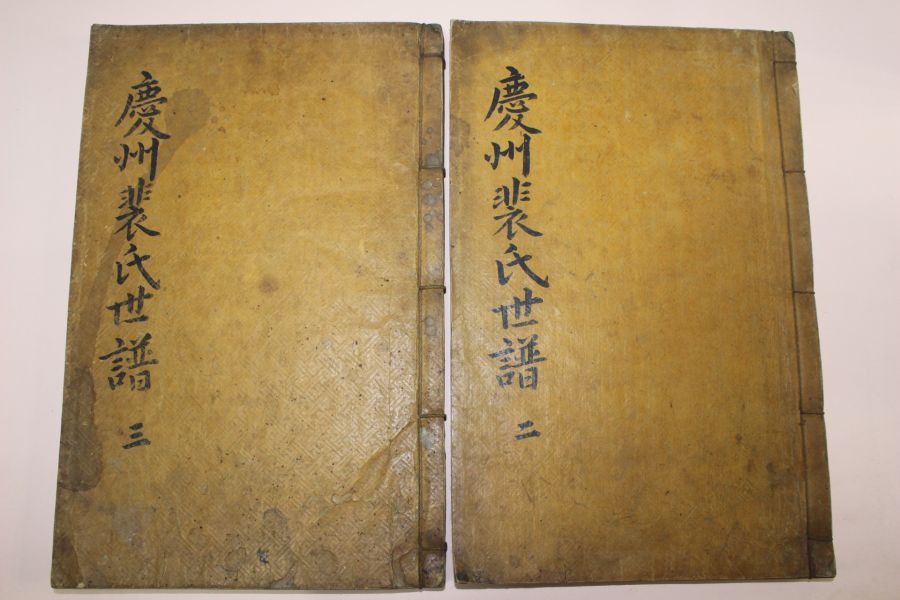 慶州裴氏世譜 二
慶州裴氏世譜 三